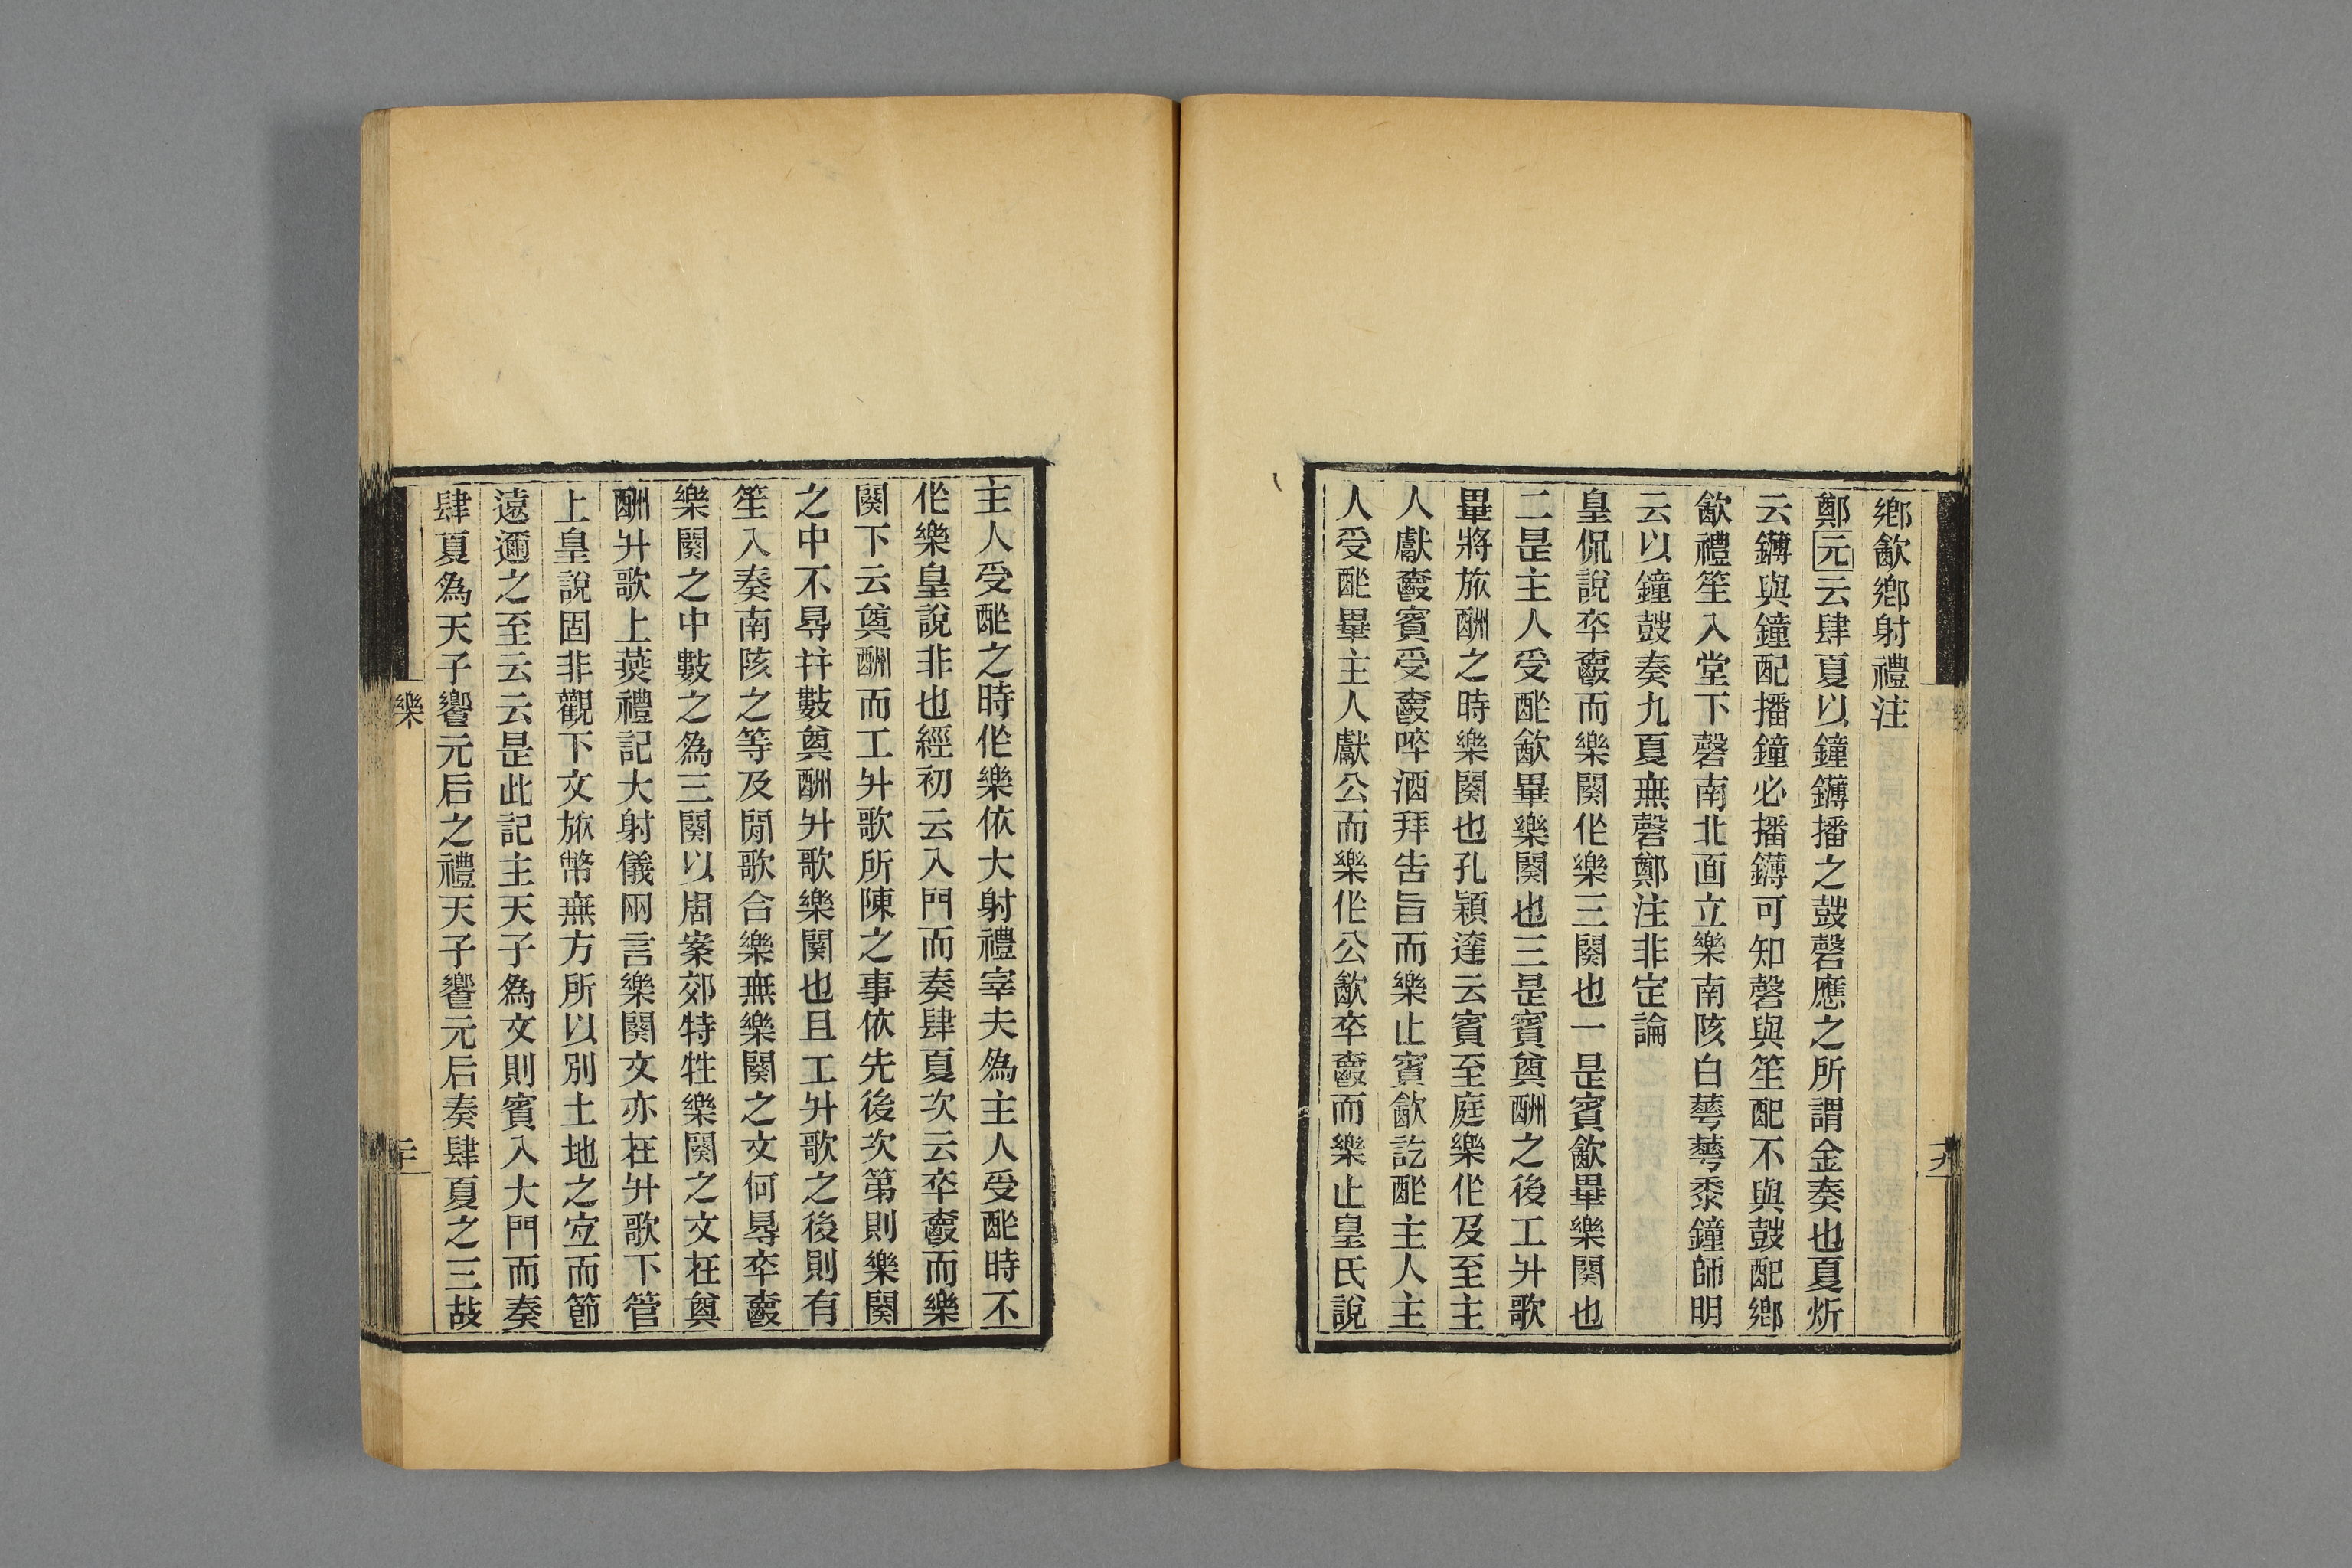 鄉歙鄉射禮注
鄭元云肆夏以鐘鑮播之鼓磬應之所謂金奏也夏炘
云鑮與鐘配播鐘必播鑮可知磬與笙配不與鼓配鄉
歙禮笙入堂下磬南北面立樂南陔白蕚蕚黍鐘師明
云以鐘鼓奏九夏無磬鄭注非定論
皇侃說卒𤔲而樂闋作樂三闋也一是賓歙畢樂闋也
二是主人受酢歙畢樂闋也三是賓奠酬之後工升歌
畢將旅酬之時樂闋也孔穎達云賓至庭樂作及至主
人獻𤔲賓受𤔲啐酒拜告旨而樂止賓歙訖酢主人主
人受酢畢主人獻公而樂作公歙卒𤔲而樂止皇氏說
主人受酢之時作樂依大射禮宰夫爲主人受酢時不
作樂皇說非也經初云入門而奏肆夏次云卒𤔲而樂
闋下云奠酬而工升歌所陳之事依先後次第則樂闋
之中不㝵并數奠酬升歌樂闋也且工升歌之後則有
笙入奏南陔之等及閒歌合樂無樂闋之文何㝵卒𤔲
樂闋之中數之爲三闋以周案郊特牲樂闋之文在奠
酬升歌上燕禮記大射儀兩言樂闋文亦在升歌下管
上皇說固非觀下文旅幣無方所以別土地之宜而節
遠邇之至云云是此記主天子爲文則賓入大門而奏
肆夏爲天子饗元后之禮天子饗元后奏肆夏之三故
樂